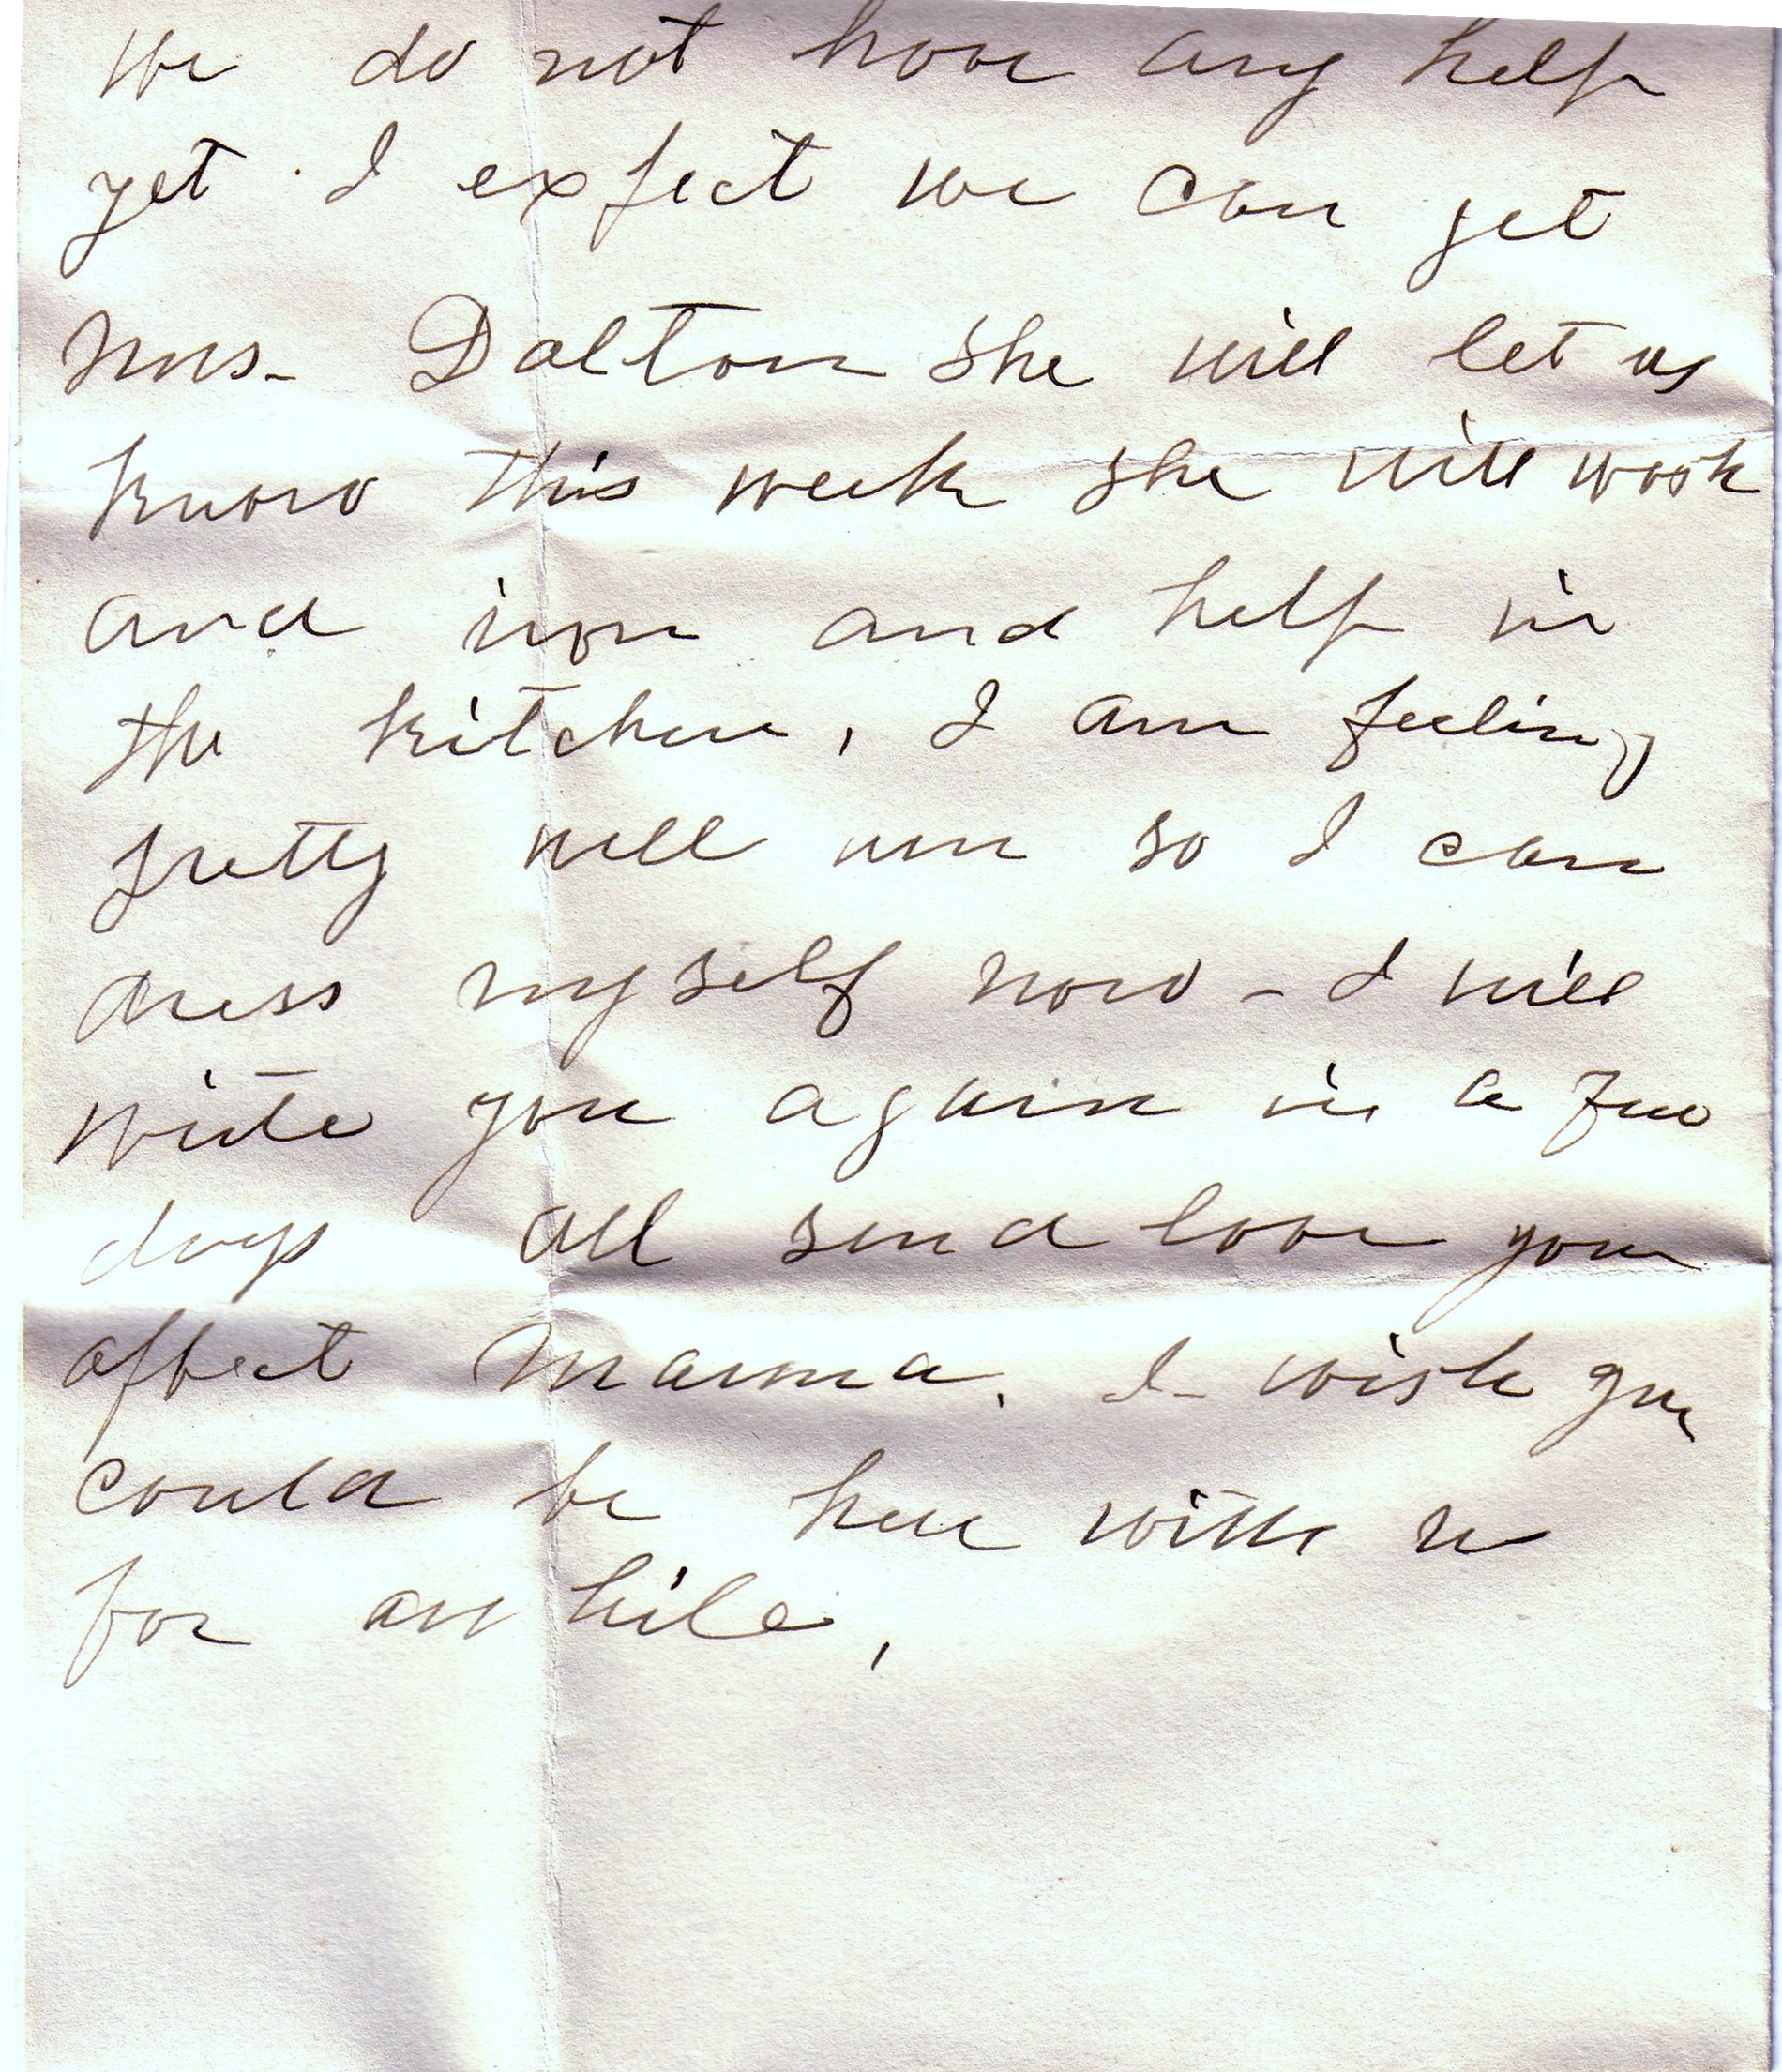 We do not have any help
yet I expect we can get
Mrs. Dalton she will let us
know this week she will wash
and iron and help in
the kitchen, I am feeling
pretty well so I can
dress myself now - I will
write you again in a few
days all send love your
affect Mamma. I wish you
could be here with us
for awhile,